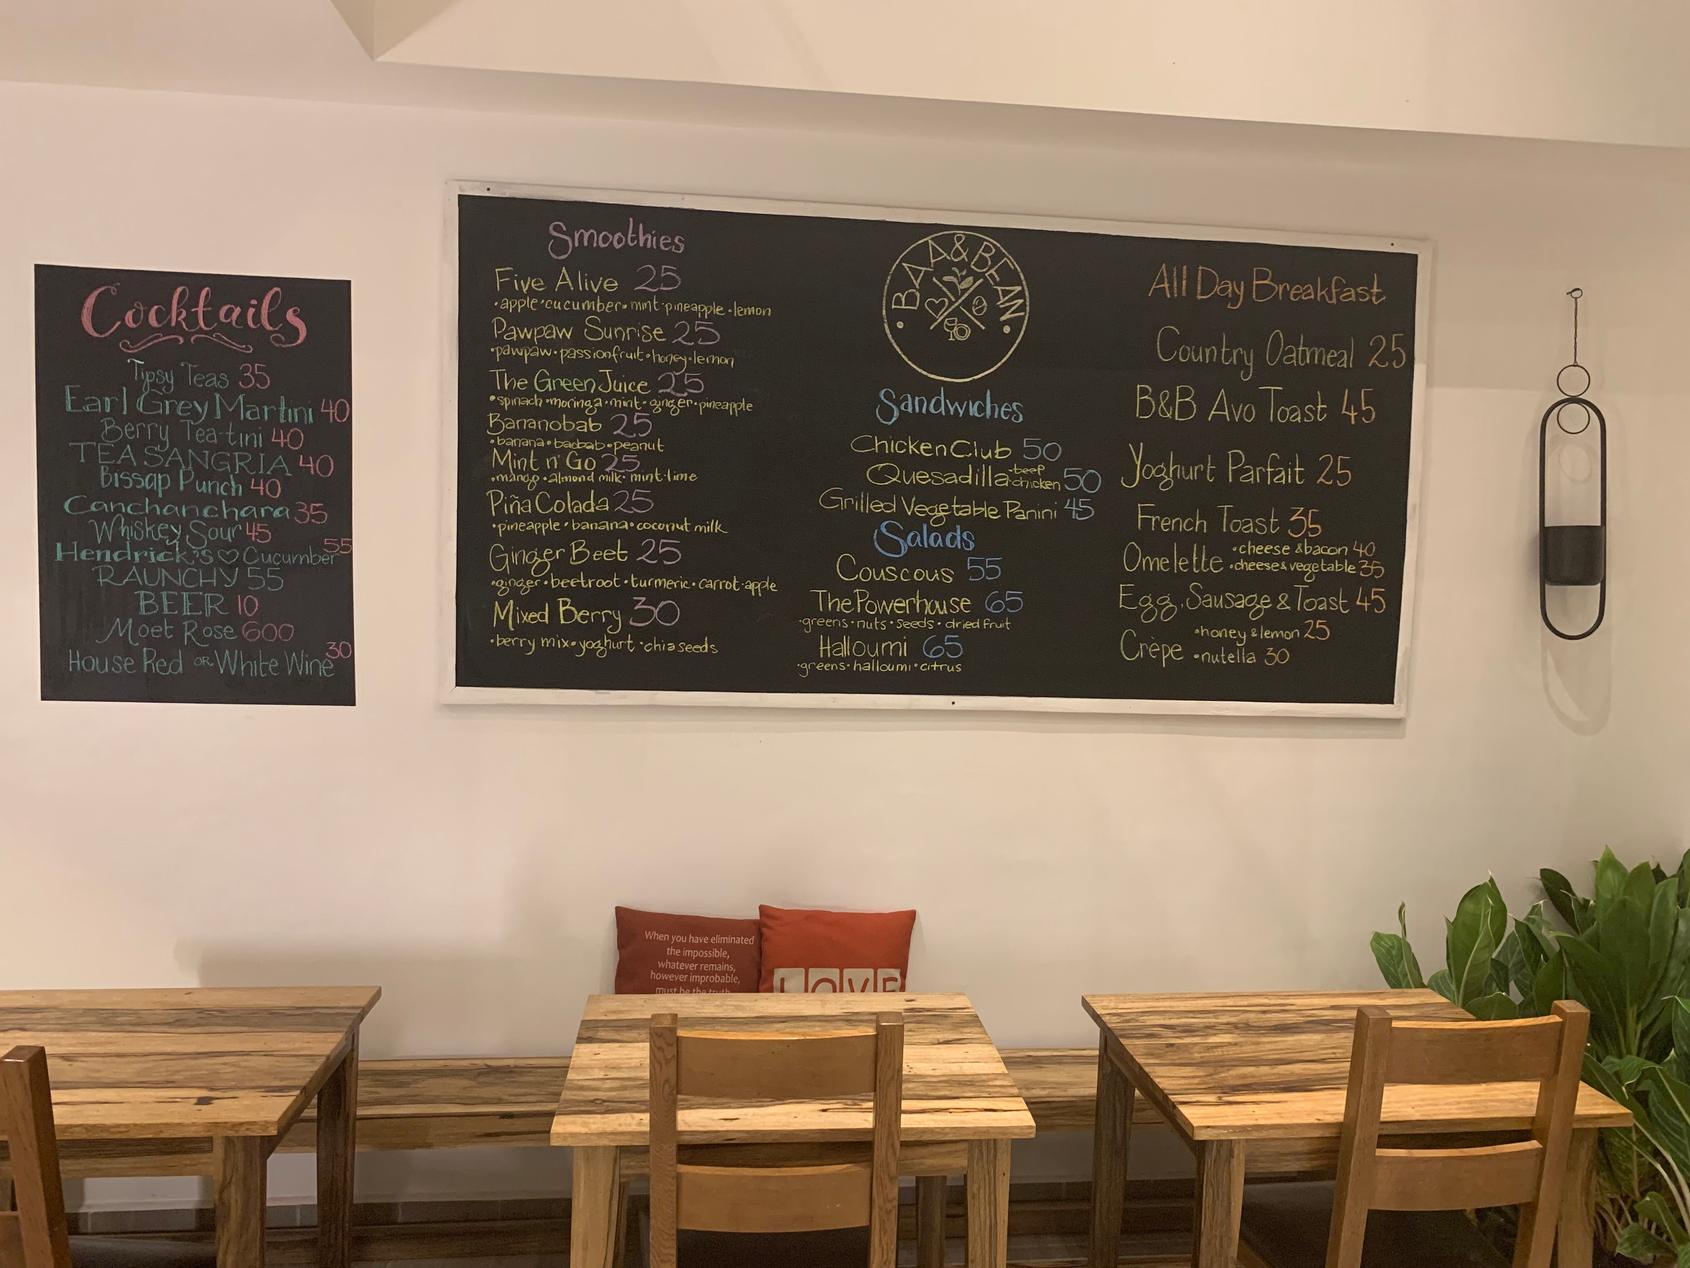 Cocktails
Tipsy Teas 35
Earl Grey Martini 40
Berry Tea-tini 40
TEA SANGRIA 40
Bissap Punch 40
Canchanchara 35
Whiskey Sour 45
Hendrick's ♡ Cucumber 55
RAUNCHY 55
BEER 10
Moet Rose 600
House Red OR White Wine 30
Smoothies
Five Alive 25
•apple•cucumber•mint•pineapple•lemon
Pawpaw Sunrise 25
•pawpaw•passionfruit•honey•lemon
The Green Juice 25
•spinach•moringa•mint•ginger•pineapple
Bananobab 25
•banana•baobab•peanut
Mint n' Go 25
•mango•almond milk•mint•lime
Piña Colada 25
•pineapple•banana•coconut milk
Ginger Beet 25
•ginger•beetroot•turmeric•carrot•apple
Mixed Berry 30
•berry mix•yoghurt•chia seeds
•BAA&BEAN•
Sandwiches
Chicken Club 50
Quesadilla •beef •chicken 50
Grilled Vegetable Panini 45
Salads
Couscous 55
The Powerhouse 65
•greens•nuts•seeds•dried fruit
Halloumi 65
•greens•halloumi•citrus
All Day Breakfast
Country Oatmeal 25
B&B Avo Toast 45
Yoghurt Parfait 25
French Toast 35
Omelette •cheese & bacon 40
•cheese & vegetable 35
Egg, Sausage & Toast 45
Crèpe •honey & lemon 25
•nutella 30
When you have eliminated
the impossible,
whatever remains,
however improbable,
must be the truth
LOVE